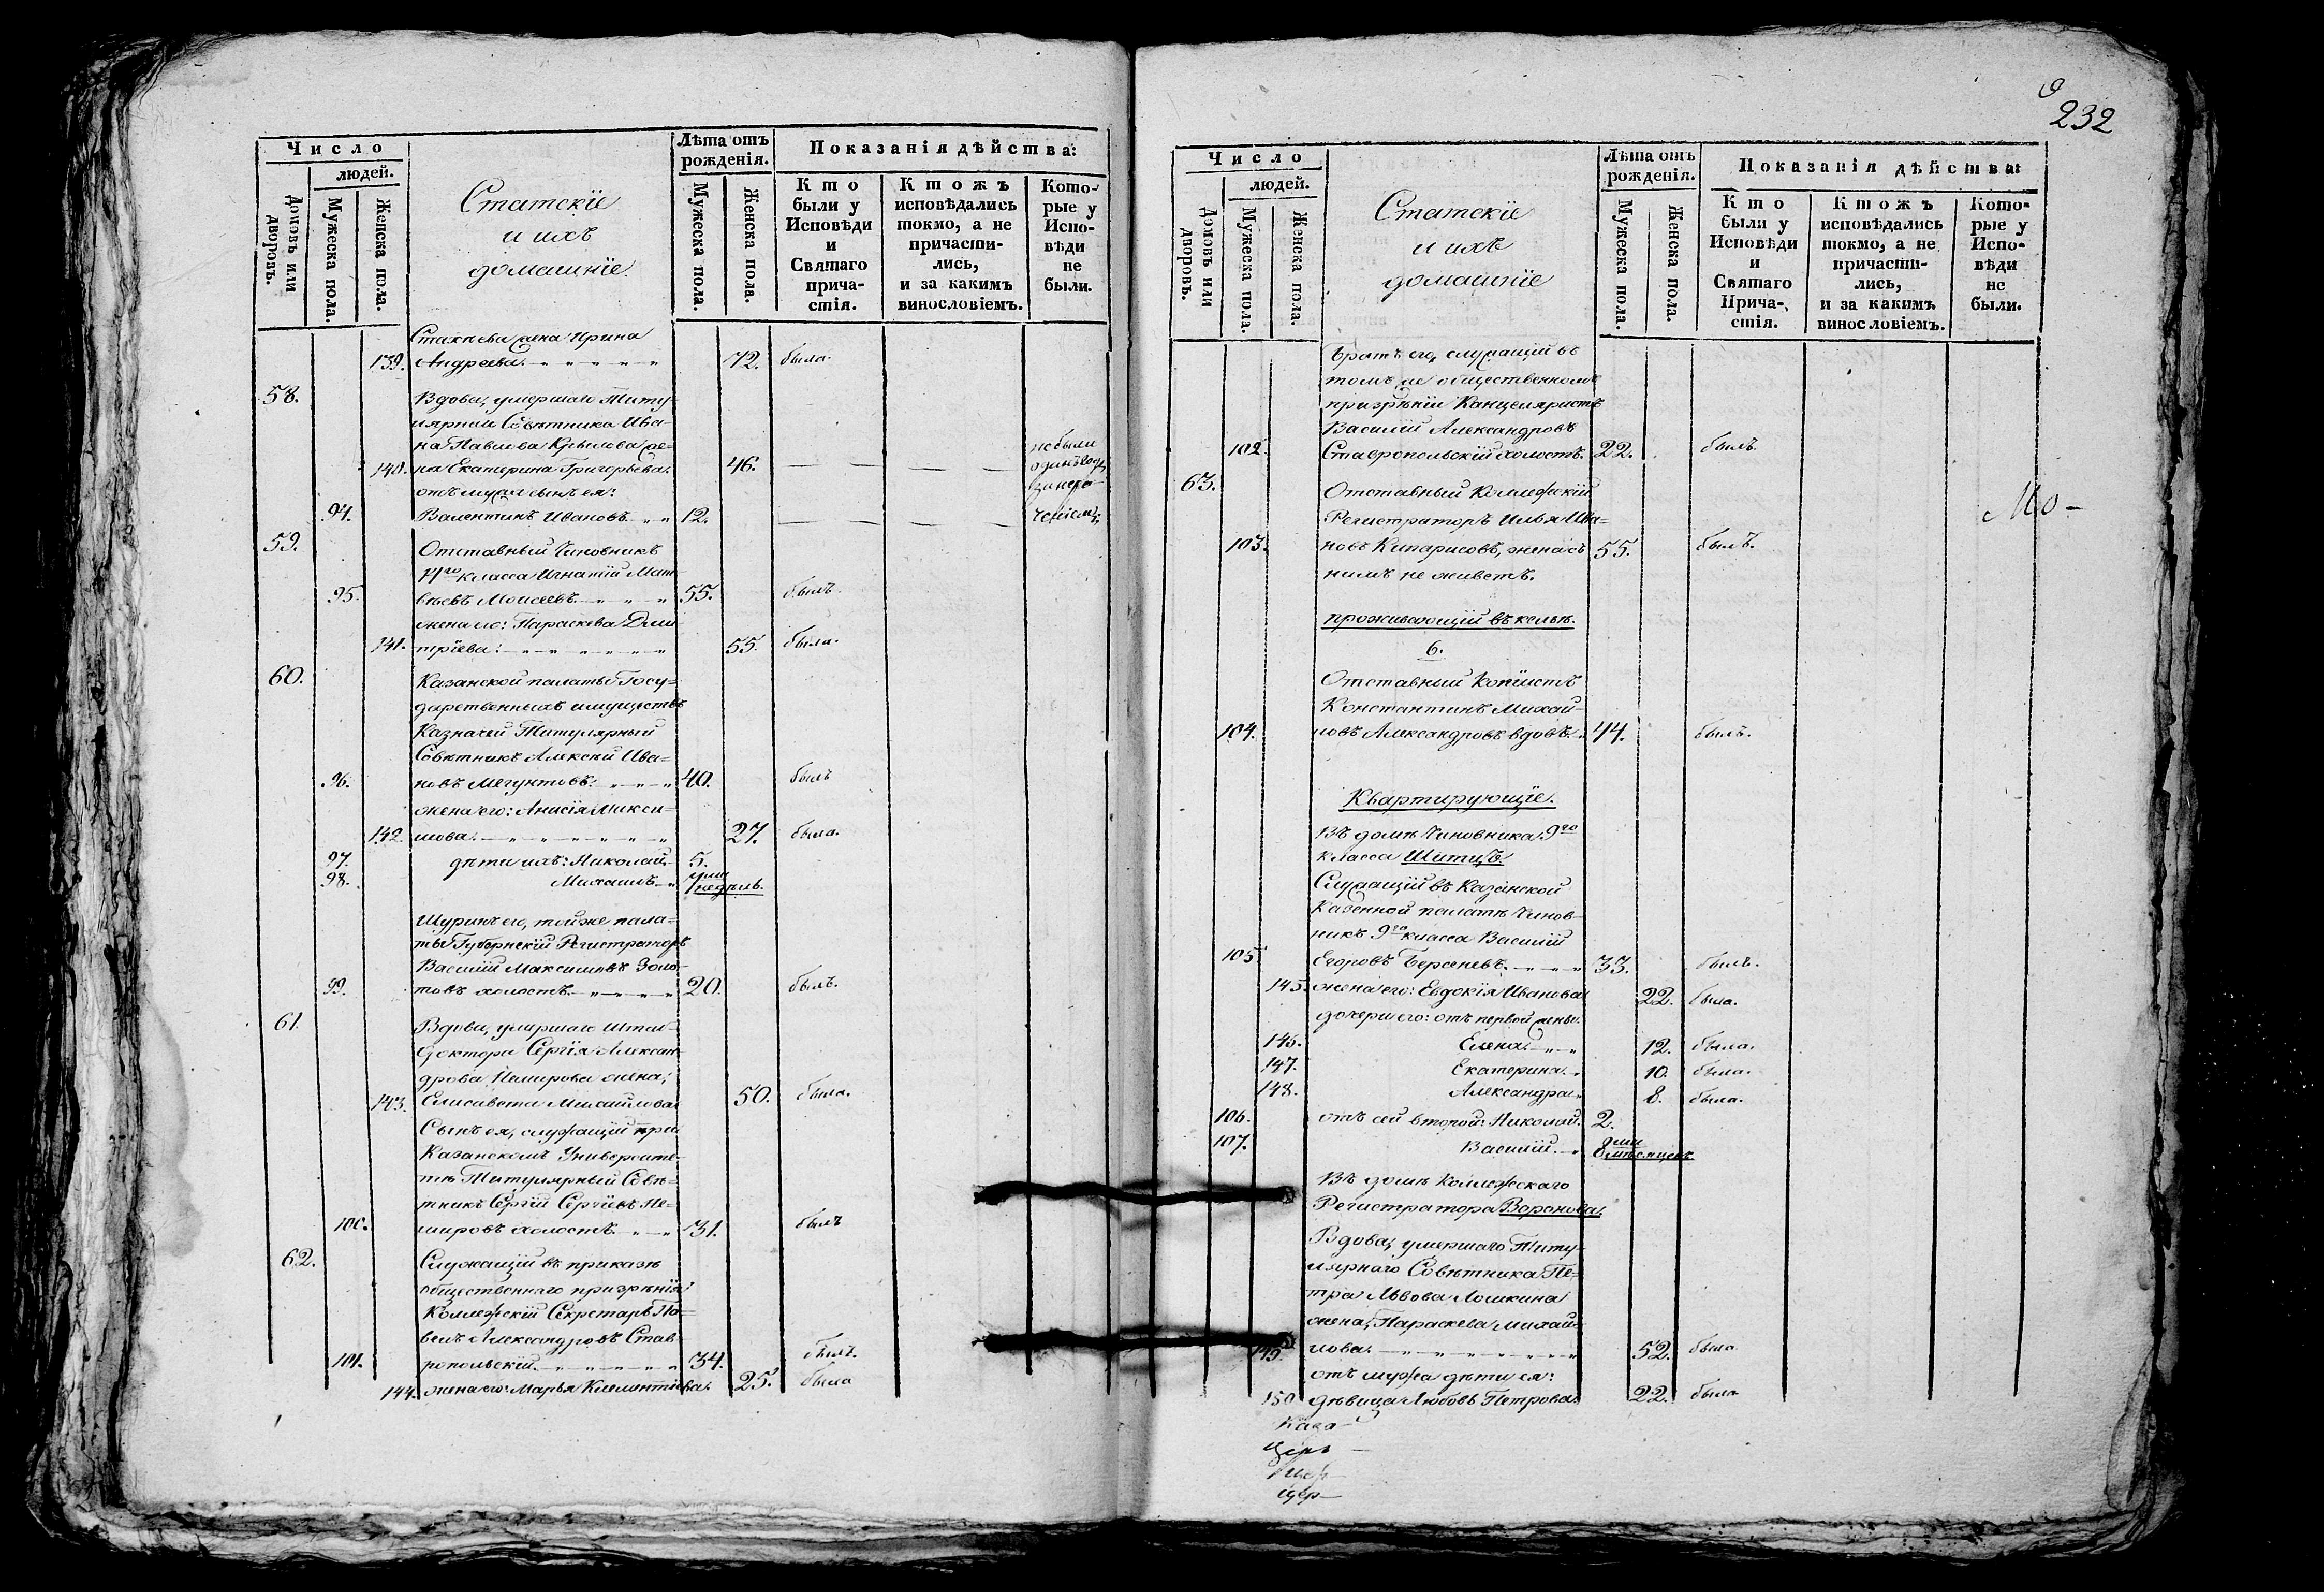 Число
людей.
Домовъ или дворовъ.
Мужеска пола.
Женска пола.
Статскіе
и ихъ
домашніе
Лѣта отъ
рожденія.
Мужеска пола.
Женска пола.
Показанія дѣйства:
Кто
были у
Исповѣди
и
Святаго
прича-
стія.
Ктожъ
исповѣдались
токмо, а не
причасти-
лись,
и за какимъ
винословіемъ.
Кото-
рые у
Испо-
вѣди
не
были.
жена Ирина
139. Андреева. 72. была.
58. Вдова, умершаго Титу-
лярнаго Совѣтника Ива-
на Павлова Крылова же- не были
140. на Екатерина Григорьева. 46.
отъ мужа сынъ ея:
94. Валентинъ Ивановъ. 12.
59. Отставный Чиновникъ
14го класса Игнатій Мат-
95. вѣевъ Моисеевъ. 55. былъ.
жена его: Параскева Дми-
141. тріева. 55. была.
60. Казанской палаты Госу-
дарственныхъ имуществъ
Казначей Титулярный
Совѣтникъ Алексѣй Ива-
96. новъ 40. былъ
жена его: Анисія Макси-
142. мова. 27. была.
97. дѣти ихъ: Николай. 5.
98. Михаилъ. недѣль.
Шуринъ его, той же пала-
ты Губернскій Регистраторъ
Василій Максимовъ Золо-
99. товъ холостъ. 20. былъ.
61. Вдова, умершаго Штаб-
доктора Сергія Алексан-
дрова Немирова жена,
143. Елисавета Михайлова 50. была.
Сынъ ея, служащій при
Казанскомъ Университе-
тѣ Титулярный Совѣ-
тникъ Сергій Сергіевъ Не-
100. мировъ холостъ. 31. былъ
62. Служащій въ приказѣ
общественнаго призрѣнія
Коллежскій Секретарь Па-
велъ Александровъ Став-
101. ропольскій. 34. былъ.
144. жена его: Марья Климентіева. 25. была
232
Число
людей.
Домовъ или дворовъ.
Мужеска пола.
Женска пола.
Статскіе
и ихъ
домашніе
Лѣта отъ
рожденія.
Мужеска пола.
Женска пола.
Показанія дѣйства:
Кто
были у
Исповѣди
и
Святаго
Прича-
стія.
Ктожъ
исповѣдались
токмо, а не
причасти-
лись,
и за какимъ
винословіемъ.
Кото-
рые у
Испо-
вѣди
не
были.
Братъ его, служащій въ
томъ же общественномъ
призрѣніи Канцеляристъ
Василій Александровъ
102. Ставропольскій холостъ. 22. былъ.
63. Отставный Коллежскій
Регистраторъ Илья Ива-
103. новъ Кипарисовъ, жена съ 55. былъ.
нимъ не живетъ.
Мо-
проживающій въ кельѣ.
6.
Отставный Копіистъ
Константинъ Михай-
104. ловъ Александровъ вдовъ. 44. былъ.
Квартирующіе.
Въ домѣ Чиновника 9го
класса Шитцъ.
Служащій въ Казанской
Казенной палатѣ Чинов-
никъ 9го класса Василій
105. Егоровъ Берсеневъ. 33. былъ.
145. жена его: Евдокія Иванова 22. была.
дочери его: отъ первой жены.
146. Елена. 12. была.
147. Екатерина. 10. была.
148. Александра. 8. была.
106. отъ сей второй: Николай. 2.
107. Василій. 8 мѣсяцевъ
Въ домѣ Коллежскаго
Регистратора Воронова.
Вдова, умершаго Титу-
лярнаго Совѣтника Пе-
тра Львова Лошкина
жена, Параскева Михай-
149. лова. 52. была.
отъ мужа дѣти ея:
150 дѣвица Любовь Петрова. 22. была